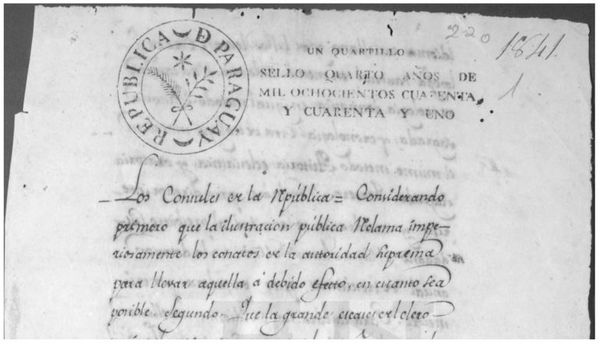 220
1841.
1
REPUBLICA D PARAGUAY
UN QUARTILLO
SELLO QUARTO AÑOS DE
MIL OCHOCIENTOS CUARENTA,
Y CUARENTA Y UNO
Los Consules de la Republica = Considerando
primero que la ilustracion pública Reclama impe-
riosamente los conatos de la autoridad Suprema
para llevar aquella á debido efecto, en cuanto sea
posible. Segundo- Que la grande escases del clero